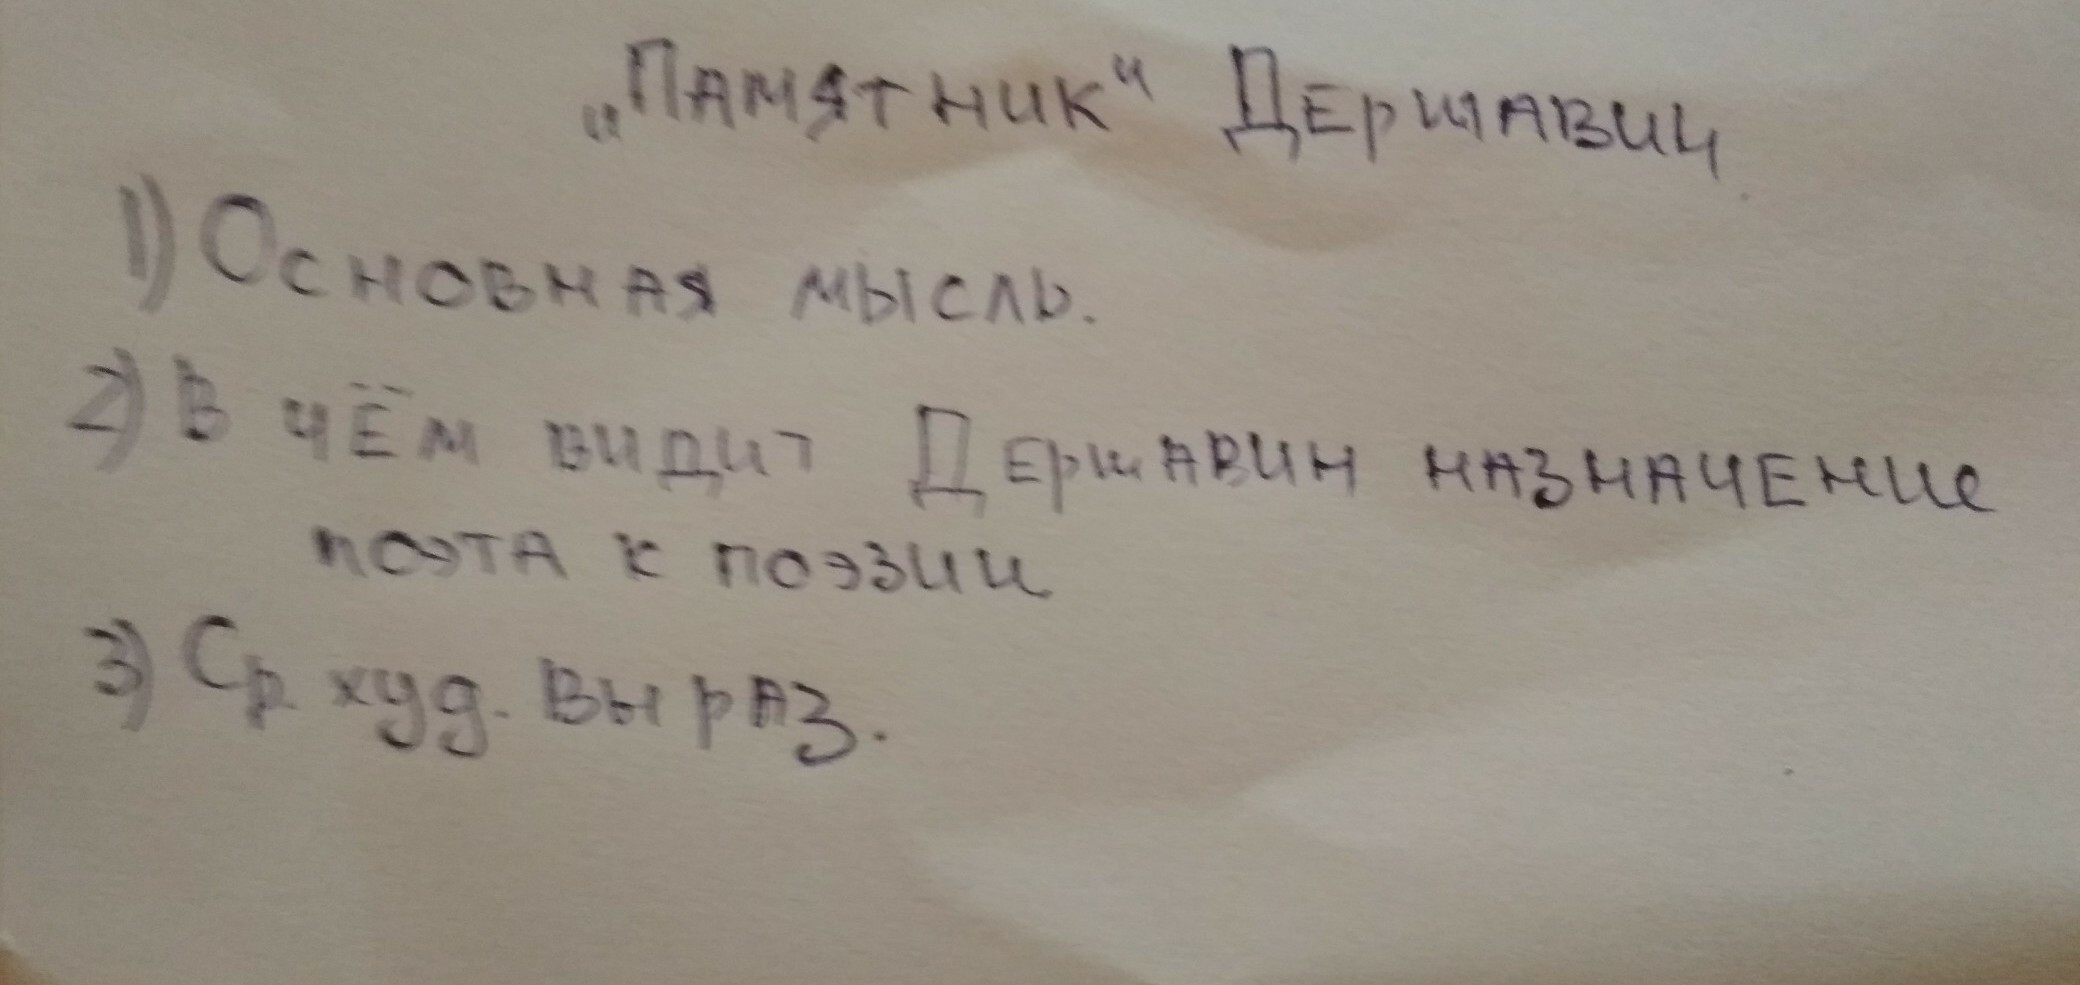 „Памятник" Державин
1) Основная мысль.
2) В чём видит Державин назначение
поэта к поэзии
3) Ср. худ. выраз.